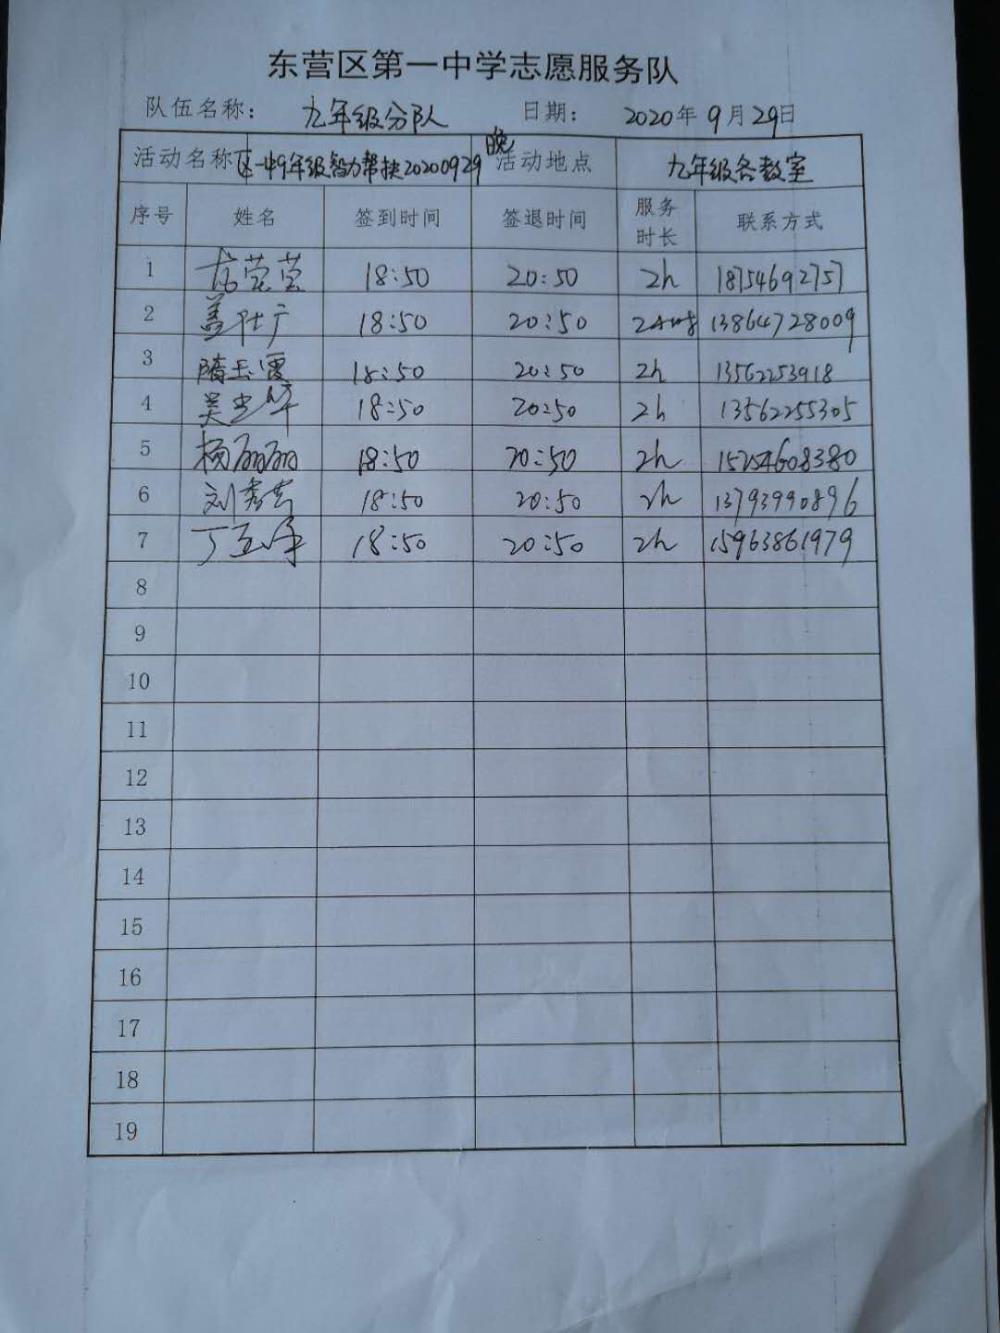 东营区第一中学志愿服务队
队伍名称： 九年级分队 日期： 2020年9月29日
活动名称 区一中9年级智力帮扶20200929晚 活动地点 九年级各教室
序号 姓名 签到时间 签退时间 服务时长 联系方式
1 莹莹 18:50 20:50 2h 18754692757
2 盖 18:50 20:50 13864728009
3 隋玉霞 18:50 20:50 2h 13562253918
4 吴 18:50 20:50 2h 13562255305
5 杨丽丽 18:50 20:50 2h 15254608380
6 刘秀芳 18:50 20:50 2h 13793990896
7 丁 18:50 20:50 2h 15963861979
8
9
10
11
12
13
14
15
16
17
18
19